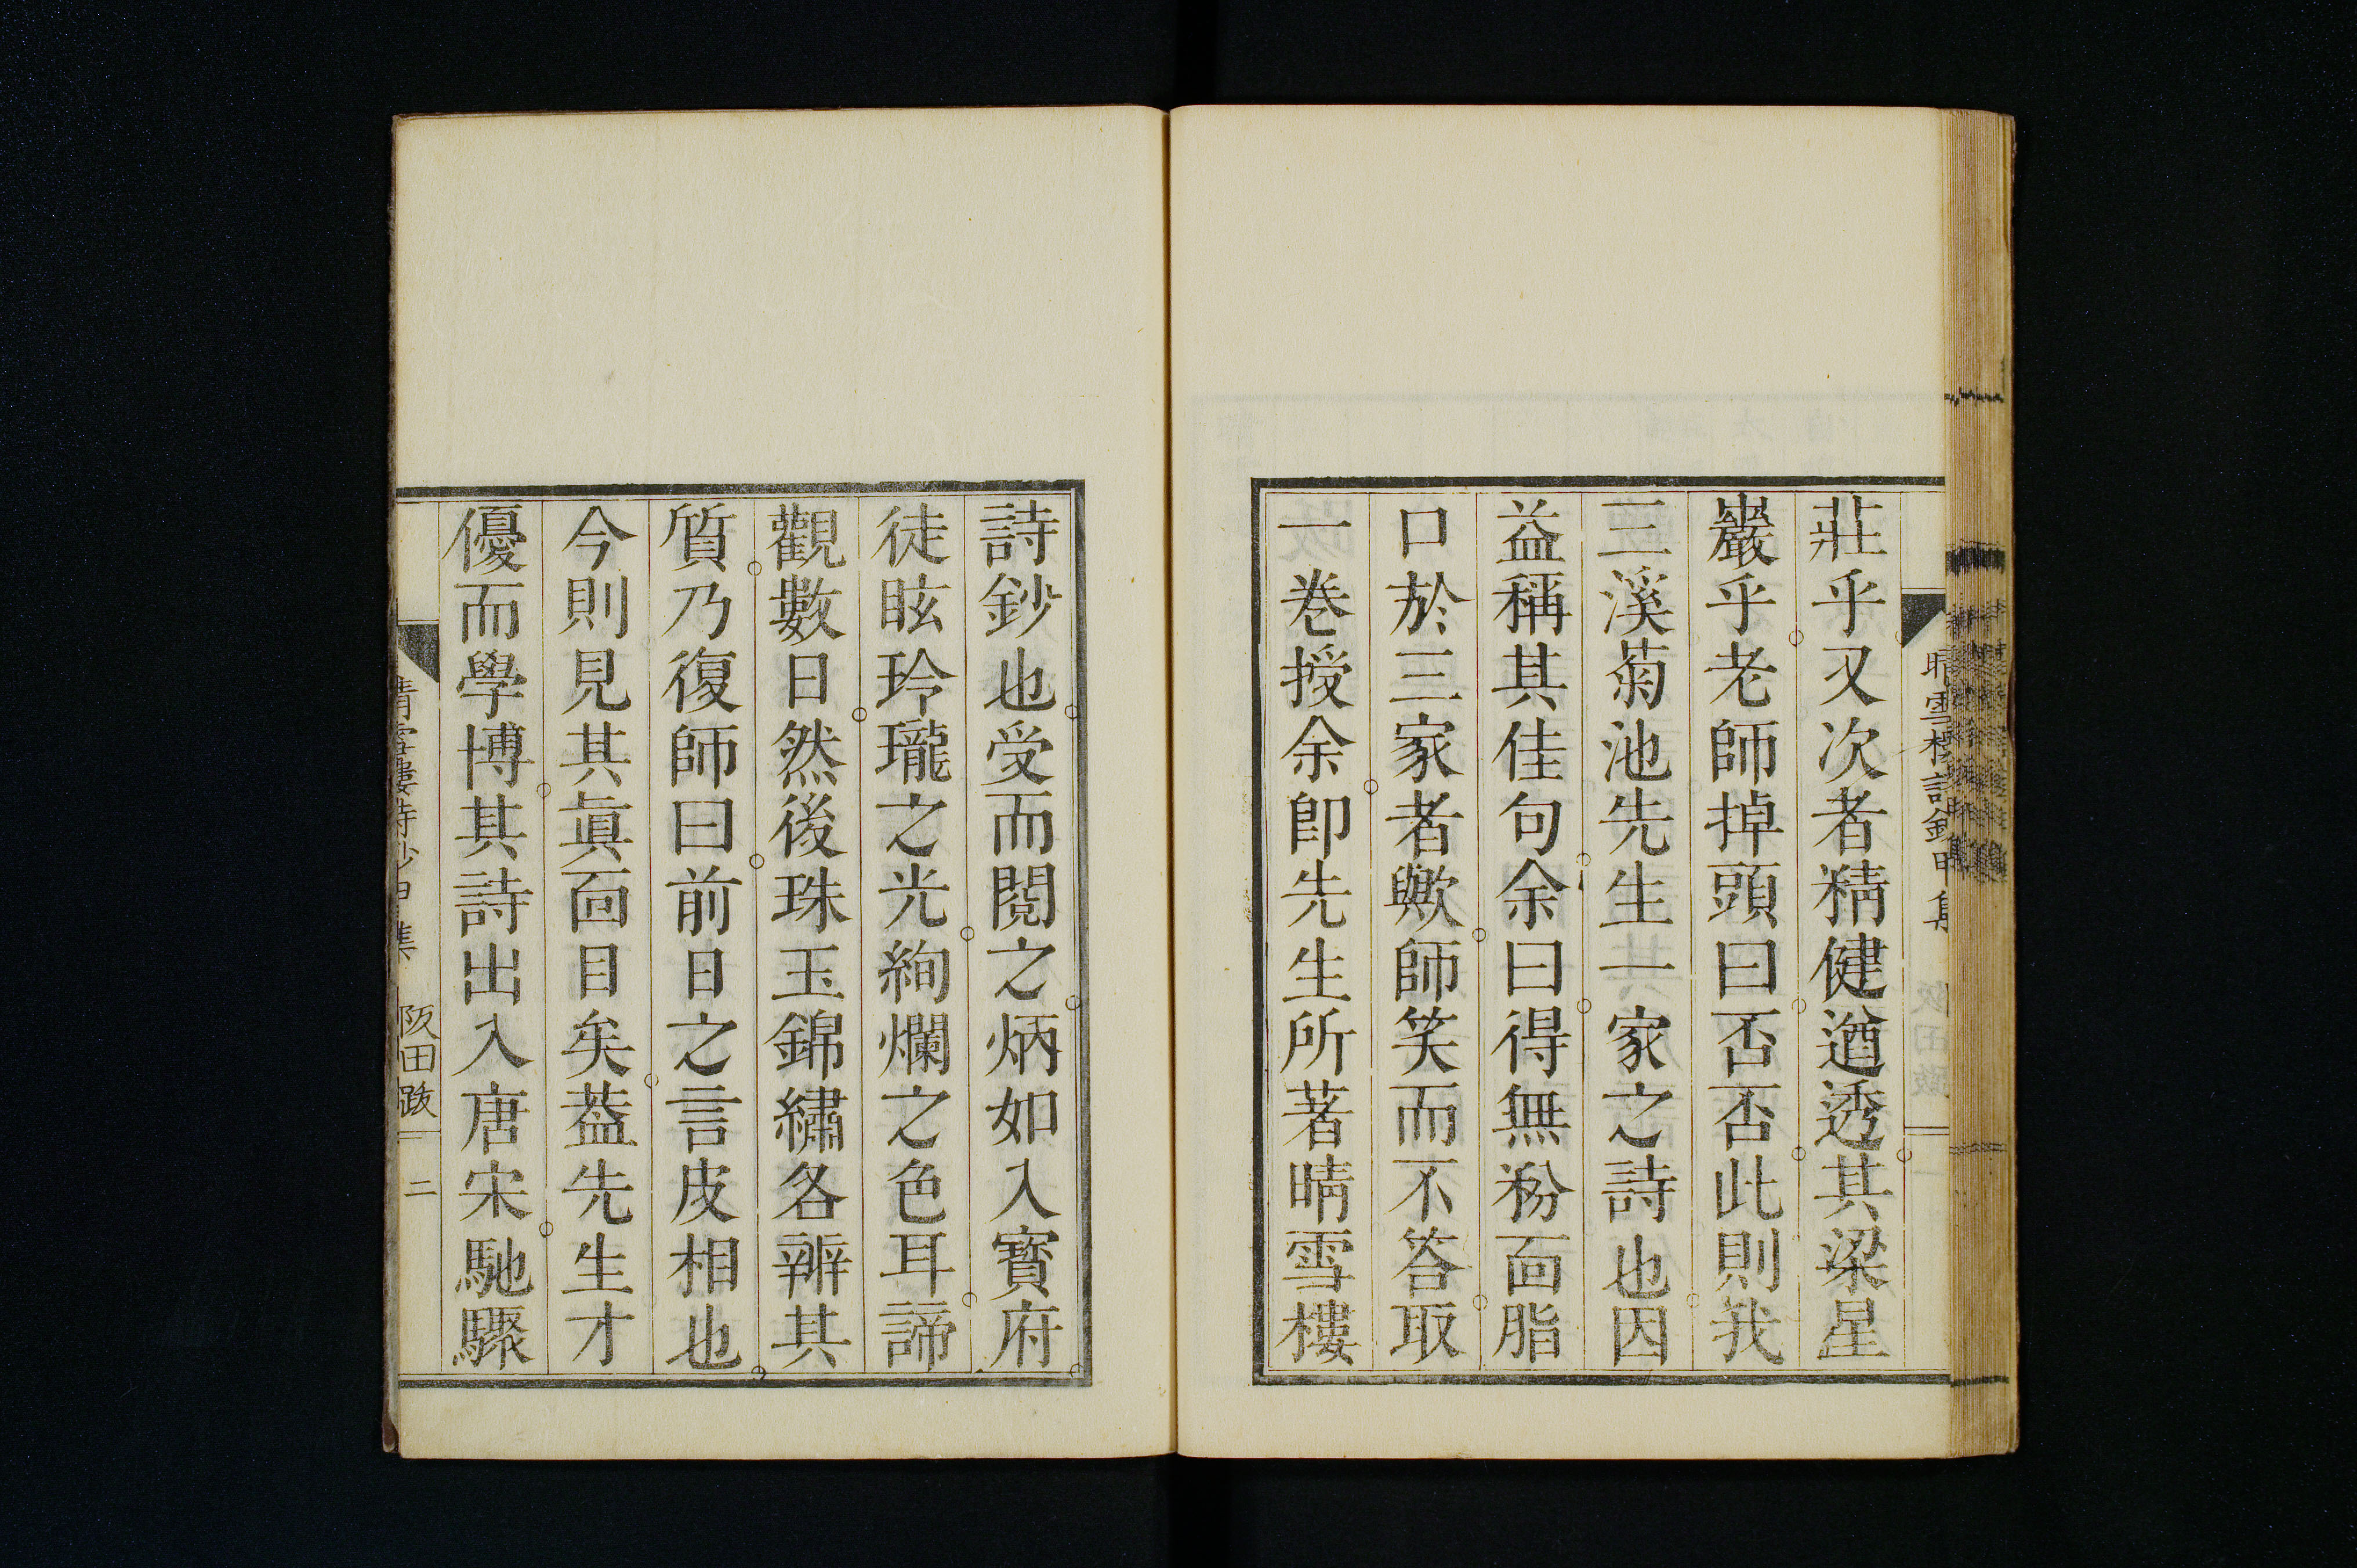 莊乎又次者精健遒透其梁星
巖乎老師掉頭曰否否此則我
三溪菊池先生一家之詩也因
益稱其佳句余曰得無粉面脂
口於三家者歟師笑而不答取
一卷授余卽先生所著晴雪樓
詩鈔也受而閱之炳如入寶府
徒眩玲瓏之光絢爛之色耳諦
觀數日然後珠玉錦繡各辨其
質乃復師曰前日之言皮相也
今則見其眞面目矣葢先生才
優而學博其詩出入唐宋馳驟
晴雪樓詩鈔甲集
阪田跋
二